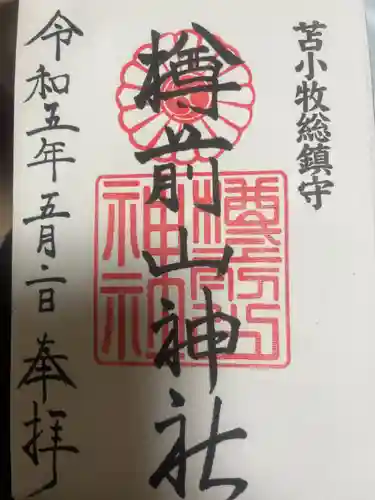 苫小牧総鎮守
樽前山神社
樽前山神社
令和五年五月二日 奉拝